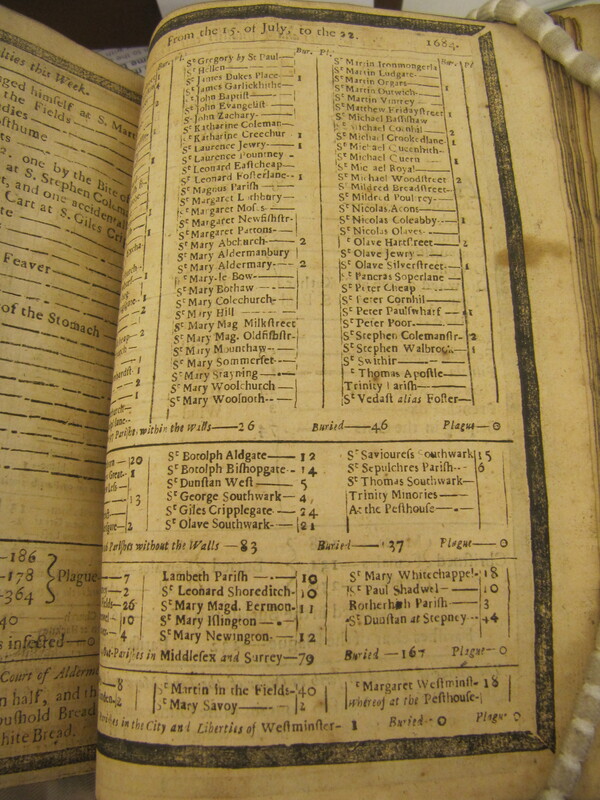 lties this Week.
ged himself at S. Mart
the Fields
osthume
2. one by the Bite of
at S. Stephen Colem
t, and one accidental
Cart at S. Giles Cri
Feaver
of the Stomach
-186
-178
-364
Plague
40
s infected—0
Court of Alderm
n half, and th
oushold Bread
hite Bread.
From the 15. of July, to the 22. 1684.
Bur. Pl.
St Gregory by St Paul
St Hellen
St James Dukes Place 1
St James Garlickhithe
St John Baptist
St John Evangelist
St John Zachary
St Katharine Coleman
St Katharine Creechur 1
St Laurence Jewry 1
St Laurence Pountney
St Leonard Eastcheap
St Leonard Fosterlane 1
St Magnus Parish
St Margaret Lothbury
St Margaret Moses
St Margaret Newfishstr
St Margaret Pattons
St Mary Abchurch 2
St Mary Aldermanbury
St Mary Aldermary 2
St Mary le Bow
St Mary Bothaw
St Mary Colechurch
St Mary Hill
St Mary Mag Milkstreet
St Mary Mag. Oldfishstr
St Mary Mounthaw
St Mary Sommerset
St Mary Stayning
St Mary Woolchurch
St Mary Woolnoth
Bur. Pl
St Martin Ironmongerla
St Martin Ludgate
St Martin Orgars
St Martin Outwich 1
St Martin Vintrey
St Matthew Fridaystreet 1
St Michael Bassishaw
St Michael Cornhil 2
St Michael Crookedlane 1
St Michael Queenhith
St Michael Quern 1
St Michael Royal
St Michael Woodstreet 2
St Mildred Breadstreet
St Mildred Poultrey
St Nicolas Acons
St Nicolas Coleabby 1
St Nicolas Olaves
St Olave Hartstreet 2
St Olave Jewry
St Olave Silverstreet 1
St Pancras Soperlane
St Peter Cheap
St Peter Cornhil
St Peter Paulswharf 1
St Peter Poor
St Stephen Colemanstr 2
St Stephen Walbrook 1
St Swithin
St Thomas Apostle
Trinity Parish
St Vedast alias Foster
Parishes within the Walls—26 Buried—46 Plague—0
20
13
2
St Botolph Aldgate 12
St Botolph Bishopgate 14
St Dunstan West 5
St George Southwark 4
St Giles Cripplegate 24
St Olave Southwark 21
St Saviouress Southwark 15
St Sepulchres Parish 6
St Thomas Southwark
Trinity Minories
At the Pesthouse
Parishes without the Walls—83 Buried—137 Plague—0
7
2
26
10
4
Lambeth Parish 10
St Leonard Shoreditch 10
St Mary Magd. Bermon 11
St Mary Islington
St Mary Newington 12
St Mary Whitechappel 18
St Paul Shadwel 10
Rotherhith Parish 3
St Dunstan at Stepney 44
out-Parishes in Middlesex and Surrey—79 Buried—167 Plague—0
8
2
St Martin in the Fields 40
St Mary Savoy 2
St Margaret Westminst 18
Whereof at the Pesthouse
Parishes in the City and Liberties of Westminster 1 Buried 0 Plague 0